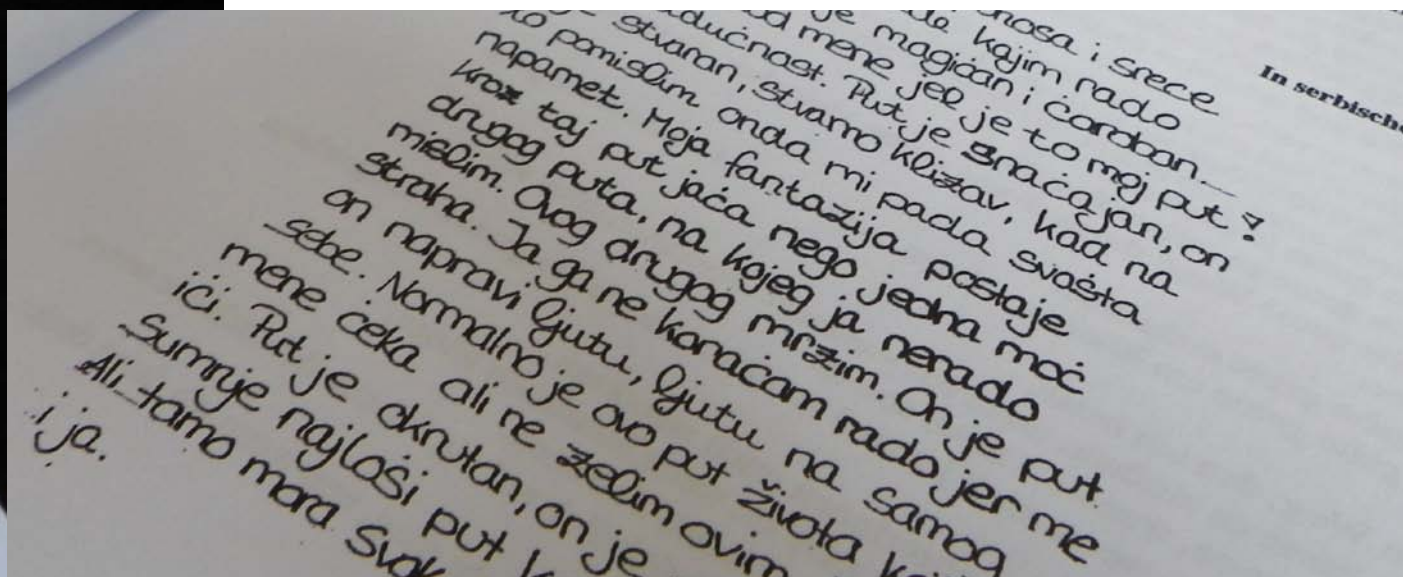 nosa i srece
kojim rado
je magićan i ćaroban.
od mene jel je to moj put?
adućnast. Put je snaćajan, on
stvaran, stvarno klizav, kad na
to pomislim onda mi pada svašta
napamet. Moja fantazija postaje
kroz taj put jaća nego jedna moć
drugog puta, na kojeg ja nerado
mislim. Ovog drugog mrzim. On je put
straha. Ja ga ne koraćam rado jer me
on napravi ljutu, ljutu na samog
sebe. Normalno je ovo put života
mene ćeka ali ne želim ovim
ići. Put je okrutan, on je
sumnje najlośi put
Ali tamo mora
i ja.
In serbische